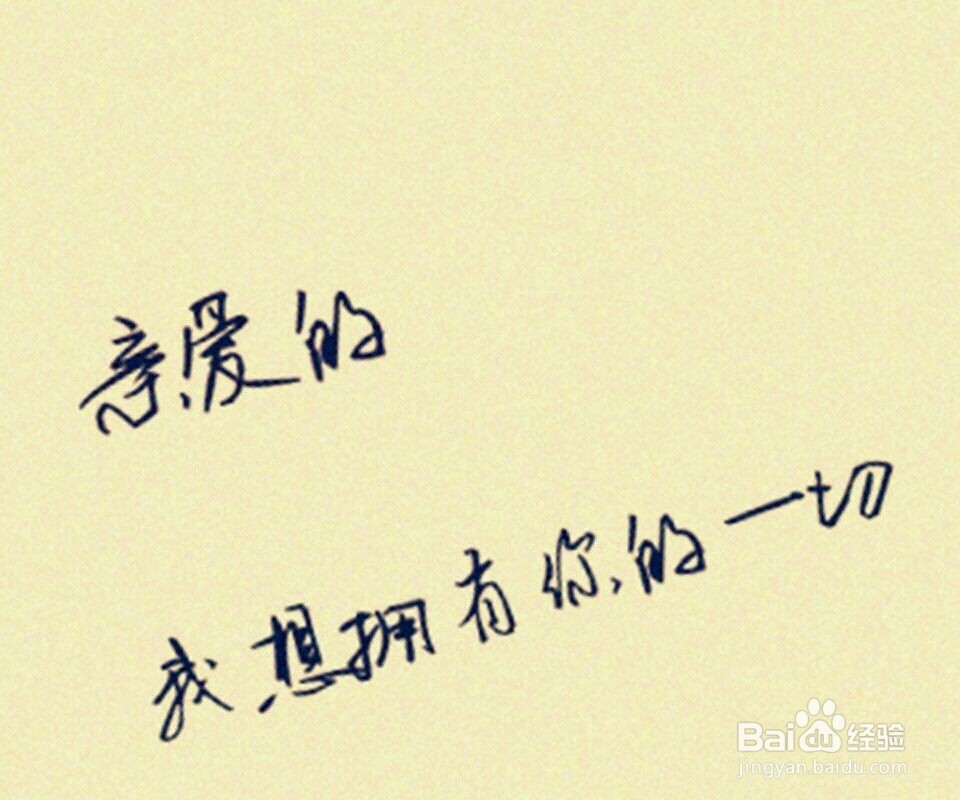 亲爱的
我想拥有你的一切
Bai du 经验
jingyan.baidu.com